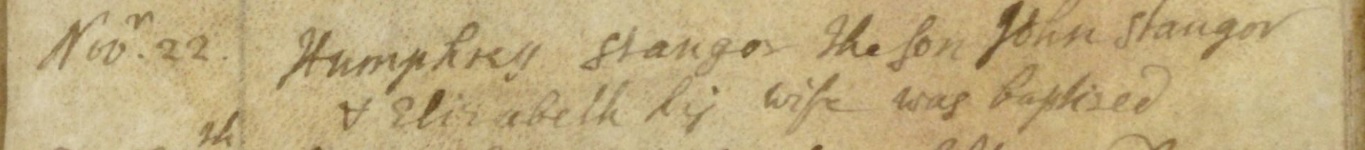 Novr. 22. Humphrey Stangor the son John Stangor
& Elizabeth his wife was baptised
th